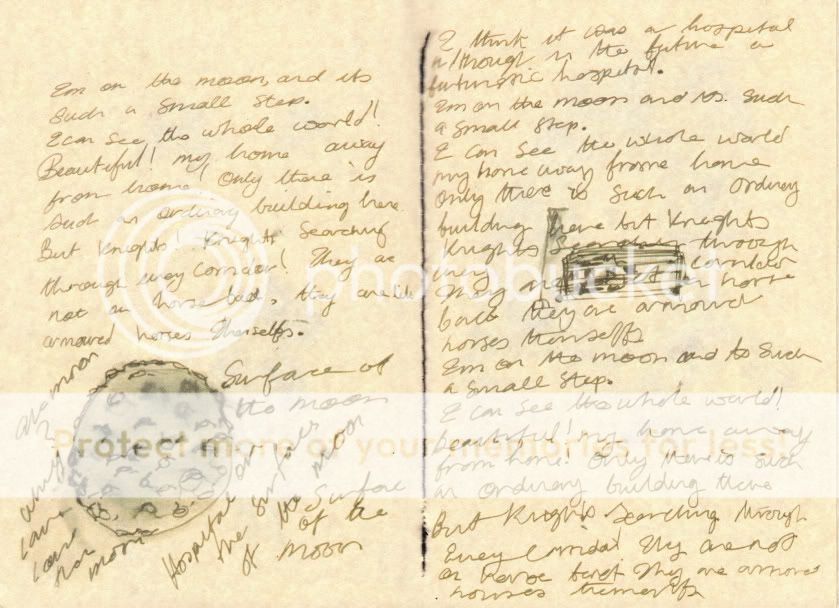 I'm on the moon, and its
such a small step.
I can see the whole world!
Beautiful! my home away
from home! Only there is
such an ordinary building here.
But Knights! Knights Searching
through every Corridor! They are
not on horse back, they are like
armoured horses themselfs.
Surface of
the moon
Surface
of the
moon
Hospital on
the surface
of the moon
moon
moon
I think it was a hospital
although in the future a
futuristic hospital.
I'm on the moon and its such
a small step.
I can see the whole world
my home away frome home
Only there is such an ordinary
building here but Knights
Knights Searching through
every Corridor
They are not on horse
back they are armoured
horses themselfs
I'm on the moon and its such
a small step.
I can see the whole world!
beautiful! my home away
from home! Only there is such
an ordinary building there
But Knights Searching through
Every Corridor! They are not
on horse back They are armored
horses themselfs
photobucket
Protect more of your memories for less!